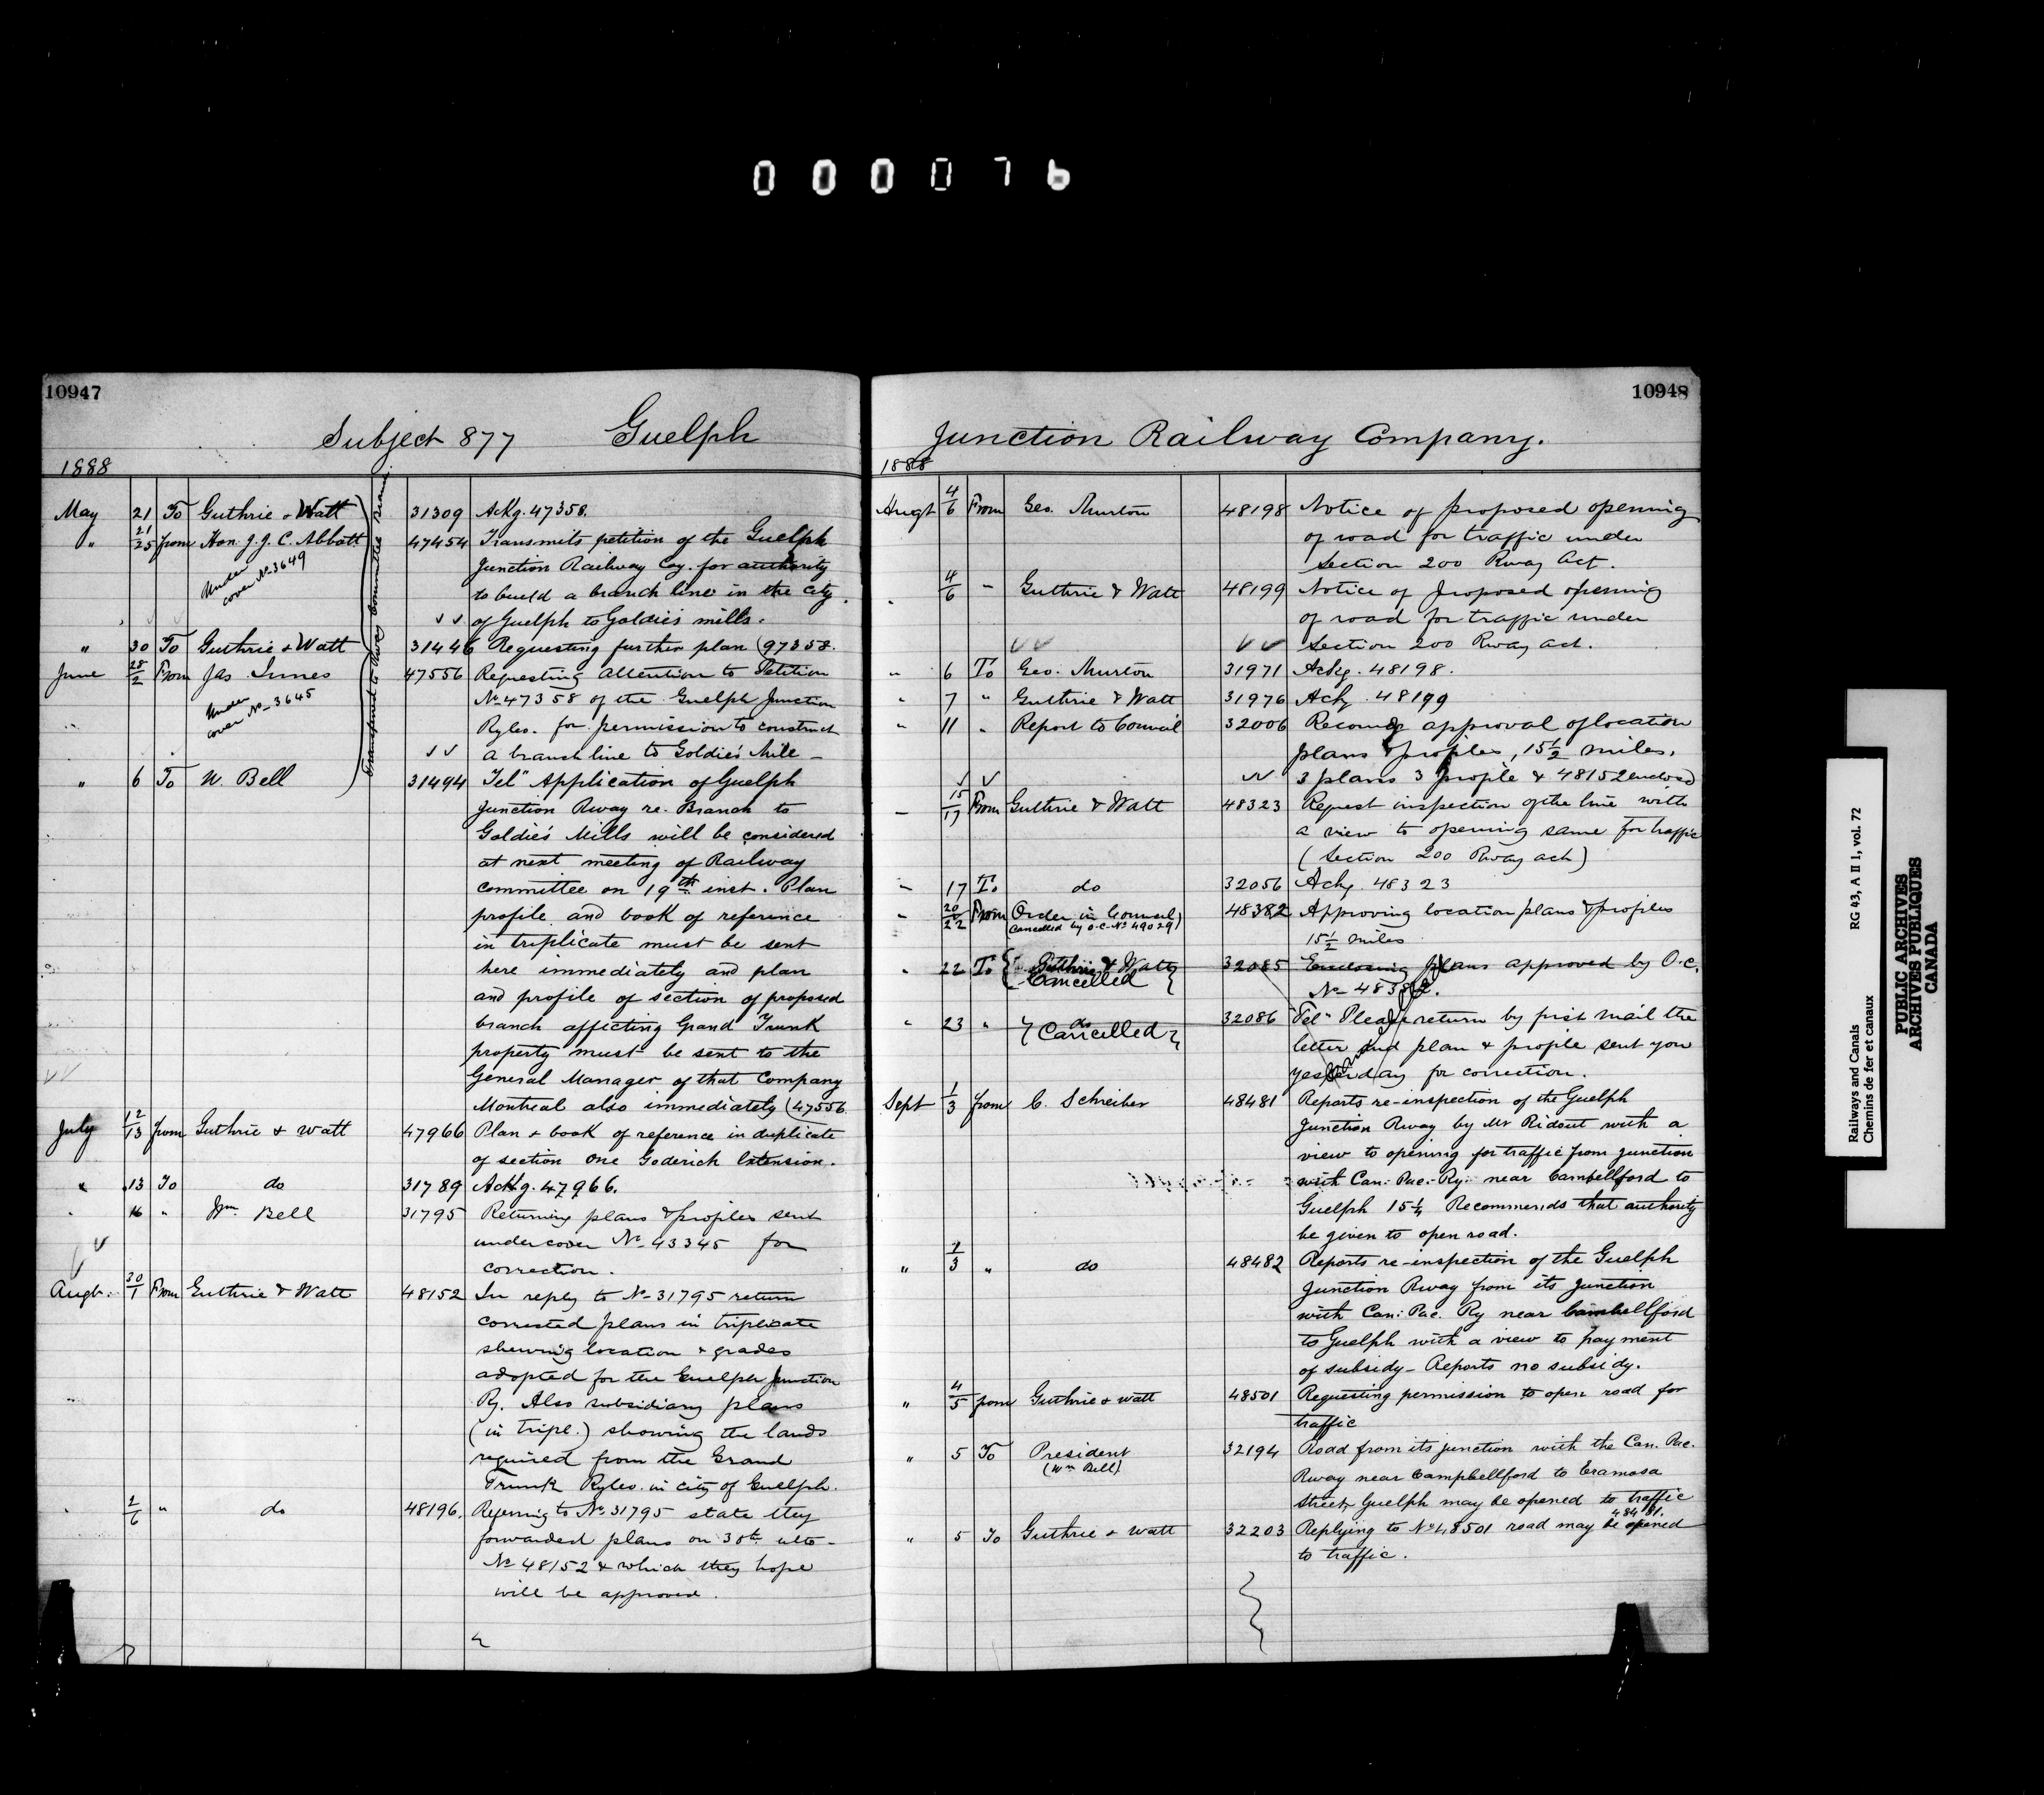 000076
10947
Subject 877 Guelph
1888
Transferred to Rway Committee
May 21 To Guthrie & Watt 31309 Ackg. 47358.
" 21/25 from Hon. J. J. C. Abbott 47454 Transmits petition of the Guelph
Under cover No 3649
Junction Railway Coy. for authority
to build a branch line in the city
of Guelph to Goldie's mills.
" 30 To Guthrie & Watt 31446 Requesting further plan (97358.
June 28/2 From Jas. Innes 47556 Requesting attention to Petition
Under cover No 3645
No 47358 of the Guelph Junction
Ryles. for permission to construct
a branch line to Goldie's Mile -
" 6 To W. Bell 31494 Tel" Application of Guelph
Junction Rway re. Branch to
Goldie's Mills will be considered
at next meeting of Railway
committee on 19th inst. Plan
profile and book of reference
in triplicate must be sent
here immediately and plan
and profile of section of proposed
branch affecting Grand Trunk
property must be sent to the
General Manager of that Company
Montreal also immediately (47556.
July 12/13 from Guthrie & Watt 47966 Plan & book of reference in duplicate
of section One Goderich Extension.
" 13 To do 31789 Ackg. 47966.
" 16 " Wm. Bell 31795 Returning plans & profiles sent
under cover No 43345 for
correction.
Augt. 30/1 From Guthrie & Watt 48152 In reply to No 31795 return
corrected plans in triplicate
shewing location & grades
adopted for the Guelph Junction
Ry. Also subsidiary plans
(in tripl.) showing the lands
required from the Grand
Trunk Ryles. in city of Guelph.
" 2/6 " do 48196. Referring to No 31795 state they
forwarded plans on 30th ulto -
No 48152 & which they hope
will be approved.
10948
Junction Railway Company.
1888
Augt 4/6 From Geo. Murton 48198 Notice of proposed opening
of road for traffic under
Section 200 Rway Act.
" 4/6 " Guthrie & Watt 48199 Notice of proposed opening
of road for traffic under
Section 200 Rway act.
" 6 To Geo. Murton 31971 Ackg. 48198.
" 7 " Guthrie & Watt 31976 Ackg. 48199
" 11 " Report to Council 32006 Recomdg approval of location
plans & profiles, 15 1/2 miles.
3 plans 3 profile & 48152 enclosed
- 15/17 From Guthrie & Watt 48323 Request inspection of the line with
a view to opening same for traffic
(Section 200 Rway act)
" 17 To do 32056 Ackg. 48323
" 20/22 From Order in Council 48382 Approving location plans & profiles
(Cancelled by O.C. No 49029)
15 1/2 miles
" 22 To Guthrie & Watt 32085 Enclosing plans approved by O.C.
Cancelled
No 48382.
" 23 " do 32086 Tel" Please return by first mail the
Cancelled
letter and plan & profile sent you
yesterday for correction.
Sept 1/3 from C. Schreiber 48481 Reports re-inspection of the Guelph
Junction Rway by Mr Ridout with a
view to opening for traffic from junction
with Can: Pac: Ry: near Cambellford to
Guelph 15 1/4 Recommends that authority
be given to open road.
" 1/3 " do 48482 Reports re-inspection of the Guelph
Junction Rway from its junction
with Can: Pac. Ry near Cambellford
to Guelph with a view to payment
of subsidy - Reports no subsidy.
" 4/5 from Guthrie & Watt 48501 Requesting permission to open road for
traffic
" 5 To President 32194 Road from its junction with the Can. Pac.
(Wm Bell)
Rway near Campbellford to Eramosa
Street, Guelph may be opened to traffic
48481.
" 5 To Guthrie & Watt 32203 Replying to No 48501 road may be opened
to traffic.
Railways and Canals RG 43, A II 1, vol. 72
Chemins de fer et canaux
PUBLIC ARCHIVES
ARCHIVES PUBLIQUES
CANADA